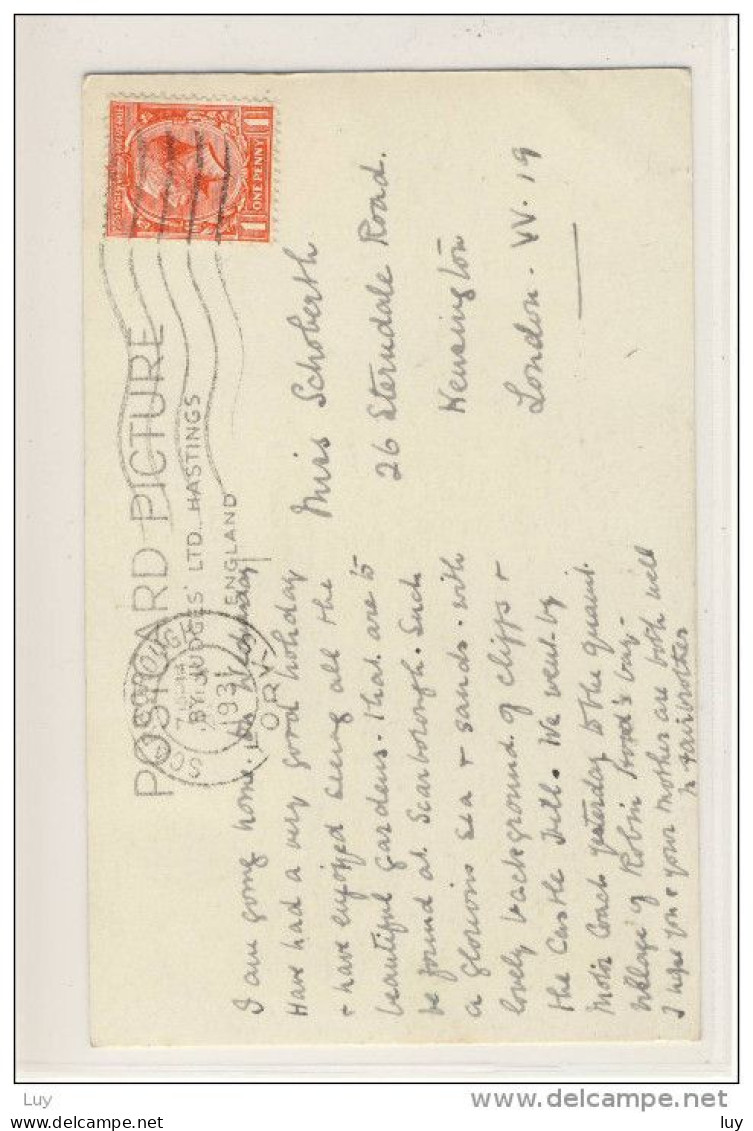 POSTCARD PICTURE
BY JUDGES' LTD., HASTINGS
ENGLAND
1931
ONE PENNY
I am going home on Wednesday
Have had a very good holiday
& have enjoyed seeing all the
beautiful gardens. that are to
be found at Scarborough. Such
a glorious sea & sands. with
lovely background of cliffs &
the Castle Hill. We went by
Motor Coach yesterday to the quaint
village of Robin Hood's bay.
I hope you & your Mother are both well
M Fairbrother
Miss Schoberth
26 Sterndale Road.
Kensington
London. W. 19
Luy
delcampe.net
luy